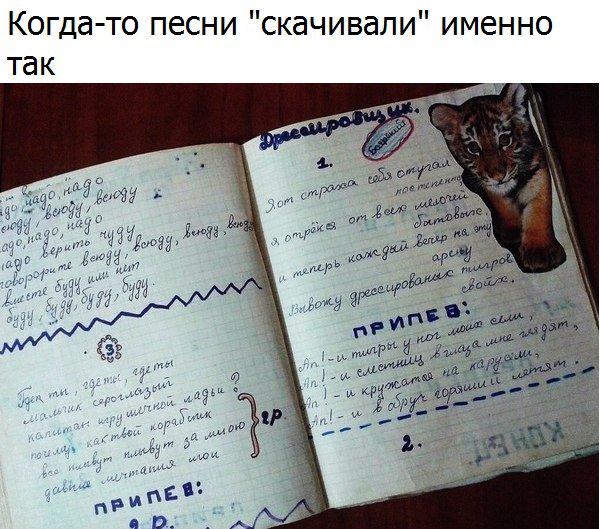 Когда-то песни "скачивали" именно
так
надо, надо, надо
всюду, всюду, всюду
надо, надо, надо
надо верить чуду
говорорите всюду, всюду, всюду, всюду
вместе буду или нет
буду, буду, буду, буду.
3
Где ты, где ты, где ты
мальчик сероглазый
капитан игрушечной ладьи?
почему, как твой кораблик
все плывут плывут за мною
давние мечтания мои
2р
ПРИПЕВ:
2 р.
Дрессировщик.
Боярский
1.
Я от страха себя отучал
постепенно
я, отрёкся от всех мелочей
бытовых.
и теперь каждый вечер на эту
арену
Вывожу дрессированых тигров
своих.
ПРИПЕВ:
Ап! - и тигры у ног моих сели,
Ап! - и с лестниц в глаза мне глядят,
Ап! - и кружатся на карусели,
Ап! - и в обруч горящий летят.
2.
КОНЕЦ